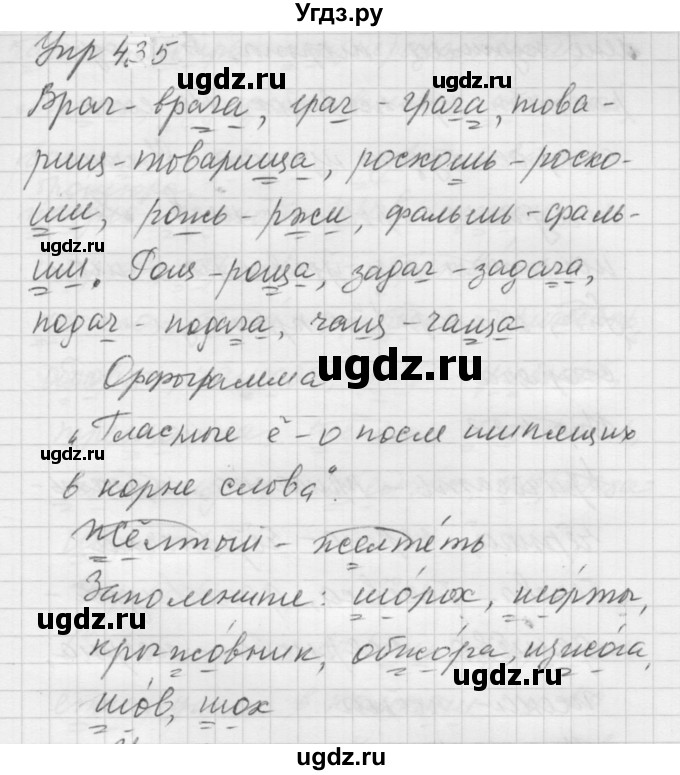 Угдз.ру
Упр 435
ugdz.ru
ugdz.ru
Врач - врача, грач - грача, това-
ugdz.ru
рищ - товарища, роскошь - роско-
ши, рожь - ржи, фальшь - фаль-
ugdz.ru
ugdz.ru
ши. Рощ - роща, задач - задача,
подач - подача, чащ - чаща
ugdz.ru
Орфограмма
„Гласные ё - о после шипящих
ugdz.ru
в корне слова“.
ugdz.ru
Жёлтый - желтеть
Запомните: шо́рох, шо́рты,
ugdz.ru
крыжо́вник, обжо́ра, изжо́га,
ugdz.ru
шо́в, шок
ugdz.ru
ugdz.ru
ugdz.ru
Угдз.ру